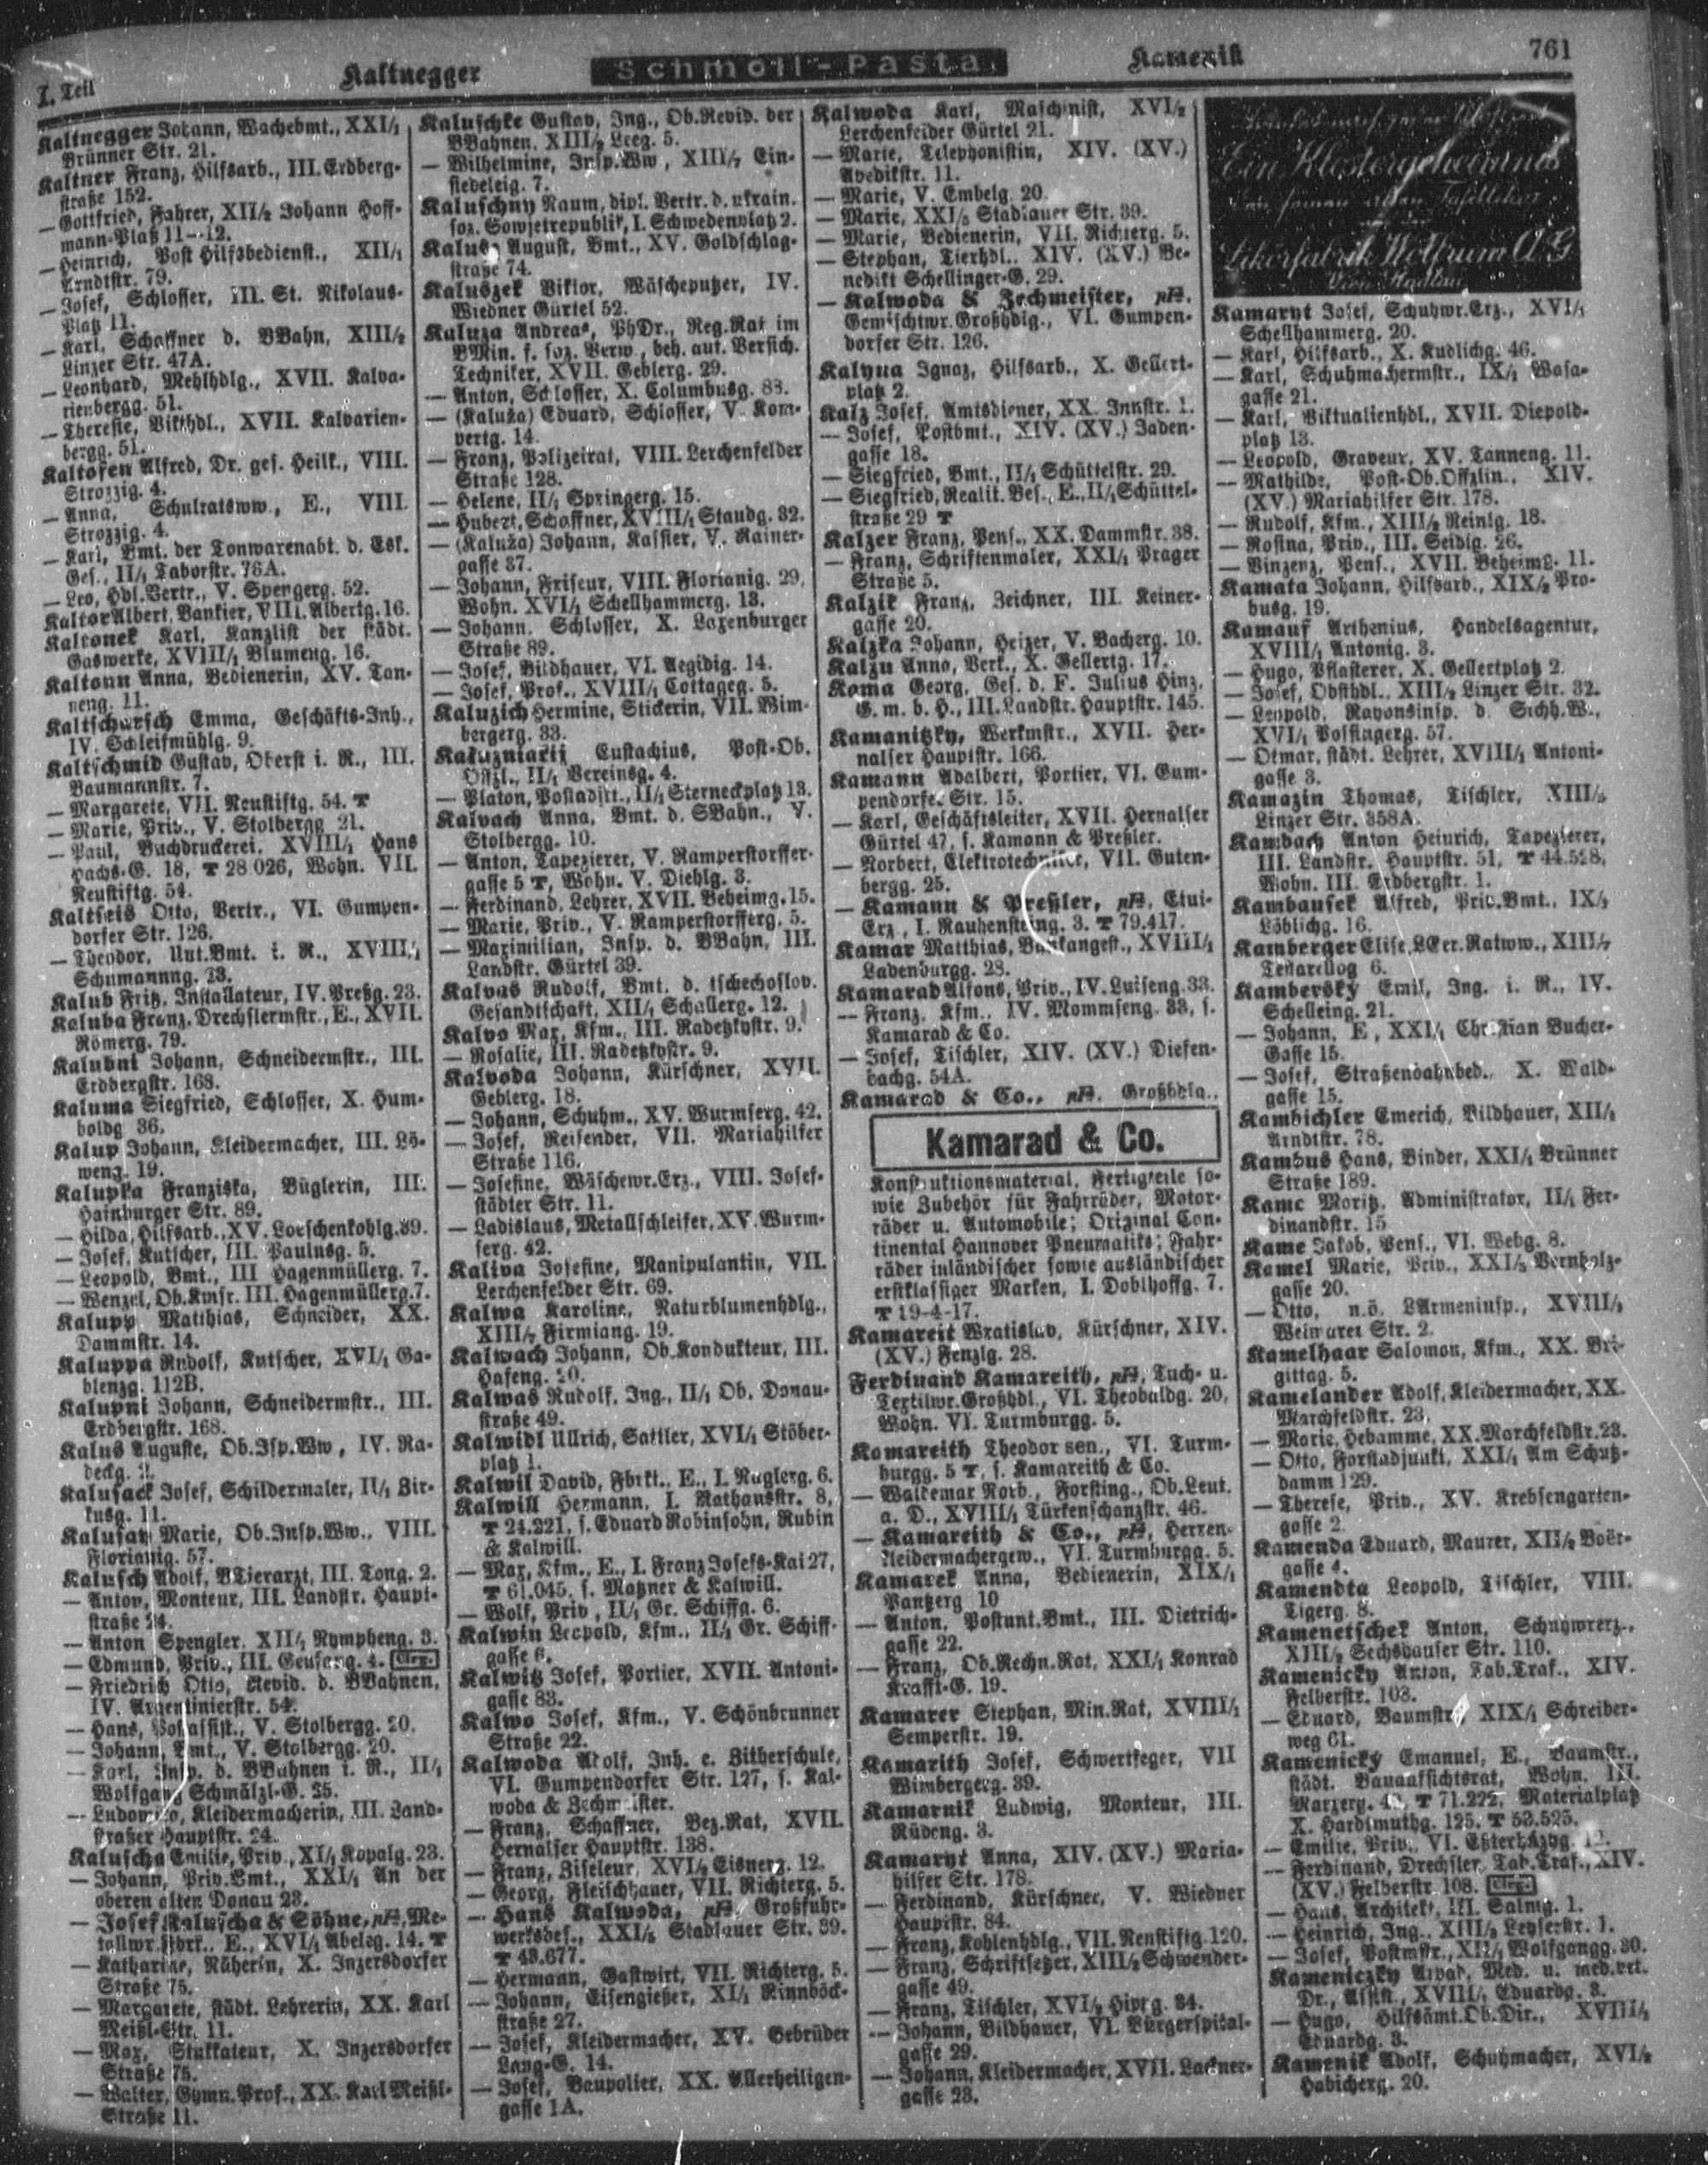 I. Teil
Kaltnegger
Schmoll-Pasta
Kamenik
761
Kaltnegger Johann, Wachebmt., XXI/1
Brünner Str. 21.
Kaltner Franz, Hilfsarb., III. Erdberg-
straße 152.
— Gottfried, Fahrer, XII/2 Johann Hoff-
mann-Platz 11–12.
— Heinrich, Post Hilfsbedienst., XII/1
Arndtstr. 79.
— Josef, Schlosser, III. St. Nikolaus-
Platz 11.
— Karl, Schaffner d. BBahn, XIII/2
Linzer Str. 47A.
— Leonhard, Mehlhdlg., XVII. Kalva-
rienbergg. 51.
— Therese, Vikthdl., XVII. Kalvarien-
bergg. 51.
Kaltofen Alfred, Dr. ges. Heilk., VIII.
Strozzig. 4.
— Anna, Schulratsww., E., VIII.
Strozzig. 4.
— Karl, Bmt. der Tonwarenabt. d. Esk.
Ges., II/1 Taborstr. 76A.
— Leo, Hdl.Vertr., V. Spengerg. 52.
Kaltor Albert, Bankier, VIII. Albertg. 16.
Kaltonek Karl, Kanzlist der städt.
Gaswerke, XVIII/1 Blumeng. 16.
Kaltoun Anna, Bedienerin, XV. Tan-
neng. 11.
Kaltschursch Emma, Geschäfts-Inh.,
IV. Schleifmühlg. 9.
Kaltschmid Gustav, Oberst i. R., III.
Baumannstr. 7.
— Margarete, VII. Neustiftg. 54. T
— Marie, Priv., V. Stolbergg. 21.
— Paul, Buchdruckerei, XVIII/1 Hans
Sachs-G. 18, T 28 026, Wohn. VII.
Neustiftg. 54.
Kaltseis Otto, Vertr., VI. Gumpen-
dorfer Str. 126.
— Theodor, Unt.Bmt. i. R., XVIII/1
Schumanng. 23.
Kalub Fritz, Installateur, IV. Preßg. 23.
Kaluba Franz, Drechslermstr., E., XVII.
Römerg. 79.
Kaludni Johann, Schneidermstr., III.
Erdbergstr. 168.
Kaluma Siegfried, Schlosser, X. Hum-
boldg 36.
Kalup Johann, Kleidermacher, III. Lö-
weng. 19.
Kalupka Franziska, Büglerin, III.
Hainburger Str. 89.
— Hilda, Hilfsarb., XV. Loeschenkohlg. 39.
— Josef, Kutscher, III. Paulusg. 5.
— Leopold, Bmt., III Hagenmüllerg. 7.
— Wenzel, Ob.Kmsr. III. Hagenmüllerg. 7.
Kalupp Matthias, Schneider, XX.
Dammstr. 14.
Kaluppa Rudolf, Kutscher, XVI/1 Ga-
blenzg. 112B.
Kalupni Johann, Schneidermstr., III.
Erdbergstr. 168.
Kalus Auguste, Ob.Isp.Ww, IV. Ra-
deckg.
Kalusack Josef, Schildermaler, II/1 Zir-
kusg. 11.
Kalusay Marie, Ob.Insp.Ww., VIII.
Florianig. 57.
Kalusch Adolf, BTierarzt, III. Tong. 2.
— Anton, Monteur, III. Landstr. Haupt-
straße 24.
— Anton Spengler, XII/1 Nympheng. 3.
— Edmund, Priv., III. Geusaug. 4.
— Friedrich Otto, Revid. d. BBahnen,
IV. Argentinierstr. 54.
— Hans, V. Stolbergg. 20.
— Johann, Bmt., V. Stolbergg. 20.
— Karl, Insp. d. BBahnen i. R., II/1
Wolfgang Schmälzl-G. 25.
— Ludowika, Kleidermacherin, III. Land-
straßer Hauptstr. 24.
Kaluscha Emilie, Priv., XI/1 Kopalg. 23.
— Johann, Priv.Bmt., XXI/1 An der
oberen alten Donau 23.
— Josef Kaluscha & Söhne, Me-
tallwr.Fbrk., E., XVI/1 Abeleg. 14. T
— Katharine, Näherin, X. Inzersdorfer
Straße 75.
— Margarete, städt. Lehrerin, XX. Karl
Meißl-Str. 11.
— Max, Stukkateur, X. Inzersdorfer
Straße 75.
— Walter, Gymn.Prof., XX. Karl Meißl-
Straße 11.
Kaluschke Gustav, Ing., Ob.Revid. der
BBahnen, XIII/2 Leeg. 5.
— Wilhelmine, Insp.Ww, XIII/7 Ein-
siedeleig. 7.
Kaluschny Naum, dipl. Vertr. d. ukrain.
soz. Sowjetrepublik, I. Schwedenplatz 2.
Kalus August, Bmt., XV. Goldschlag-
straße 74.
Kaluszek Viktor, Wäscheputzer, IV.
Wiedner Gürtel 52.
Kaluza Andreas, PhDr., Reg.Rat im
BMin. f. soz. Verw., beh. aut. Versich.
Techniker, XVII. Geblerg. 29.
— Anton, Schlosser, X. Columbusg. 88.
— (Kaluža) Eduard, Schlosser, V. Kom-
pertg. 14.
— Franz, Polizeirat, VIII. Lerchenfelder
Straße 128.
— Helene, II/1 Springerg. 15.
— Hubert, Schaffner, XVIII/1 Staudg. 32.
— (Kaluža) Johann, Kassier, V. Rainer-
gasse 37.
— Johann, Friseur, VIII. Florianig. 29,
Wohn. XVI/1 Schellhammerg. 13.
— Johann, Schlosser, X. Laxenburger
Straße 89.
— Josef, Bildhauer, VI. Aegidig. 14.
— Josef, Prof., XVIII/1 Cottageg. 5.
Kaluzich Hermine, Stickerin, VII. Wim-
bergerg. 33.
Kaluzniacki Eustachius, Post-Ob.
Offzl., II/1 Vereinsg. 4.
— Platon, Postadjkt., II/1 Sterneckplatz 13.
Kalvach Anna, Bmt. d. SBahn., V.
Stolbergg. 10.
— Anton, Tapezierer, V. Ramperstorffer-
gasse 5 T, Wohn. V. Diehlg. 3.
— Ferdinand, Lehrer, XVII. Beheimg. 15.
— Marie, Priv., V. Ramperstorfferg. 5.
— Maximilian, Insp. d. BBahn, III.
Landstr. Gürtel 39.
Kalvas Rudolf, Bmt. d. tschechoslov.
Gesandtschaft, XII/1 Schallerg. 12.
Kalvo Max, Kfm., III. Radetzkystr. 9.
— Rosalie, III. Radetzkystr. 9.
Kalvoda Johann, Kürschner, XVII.
Geblerg. 18.
— Johann, Schuhm., XV. Wurmserg. 42.
— Josef, Reisender, VII. Mariahilfer
Straße 116.
— Josefine, Wäschewr.Erz., VIII. Josef-
städter Str. 11.
— Ladislaus, Metallschleifer, XV. Wurm-
serg. 42.
Kaliva Josefine, Manipulantin, VII.
Lerchenfelder Str. 69.
Kalwa Karoline, Naturblumenhdlg.,
XIII/7 Firmiang. 19.
Kalwach Johann, Ob.Kondukteur, III.
Hafeng. 20.
Kalwas Rudolf, Ing., II/1 Ob. Donau-
straße 49.
Kalwidl Ullrich, Sattler, XVI/1 Stöber-
platz 1.
Kalwil David, Fbrkt., E., I. Naglerg. 6.
Kalwill Hermann, I. Rathausstr. 8,
T 24.221, s. Eduard Robinsohn, Rubin
& Kalwill.
— Max, Kfm., E., I. Franz Josefs-Kai 27,
T 61.045, s. Matzner & Kalwill.
— Wolf, Priv, II/1 Gr. Schiffg. 6.
Kalwin Leopold, Kfm., II/1 Gr. Schiff-
gasse 6.
Kalwitz Josef, Portier, XVII. Antoni-
gasse 83.
Kalwo Josef, Kfm., V. Schönbrunner
Straße 22.
Kalwoda Adolf, Inh. e. Zitherschule,
VI. Gumpendorfer Str. 127, s. Kal-
woda & Zechmeister.
— Franz, Schaffner, Bez.Rat, XVII.
Hernalser Hauptstr. 138.
— Franz, Ziseleur, XVI/2 Eisnerg. 12.
— Georg, Fleischhauer, VII. Richterg. 5.
— Hans Kalwoda, Großfuhr-
werksbes., XXI/5 Stadlauer Str. 39.
T 48.677.
— Hermann, Gastwirt, VII. Richterg. 5.
— Johann, Eisengießer, XI/1 Rinnböck-
straße 27.
— Josef, Kleidermacher, XV. Gebrüder
Lang-G. 14.
— Josef, Baupolier, XX. Allerheiligen-
gasse 1A.
Kalwoda Karl, Maschinist, XVI/2
Lerchenfelder Gürtel 21.
— Marie, Telephonistin, XIV. (XV.)
Avedikstr. 11.
— Marie, V. Embelg. 20.
— Marie, XXI/5 Stadlauer Str. 39.
— Marie, Bedienerin, VII. Richterg. 5.
— Stephan, Tierhdl., XIV. (XV.) Be-
nedikt Schellinger-G. 29.
— Kalwoda & Zechmeister,
Gemischtwr.Großhdlg., VI. Gumpen-
dorfer Str. 126.
Kalyna Ignaz, Hilfsarb., X. Gellert-
platz 2.
Kalz Josef, Amtsdiener, XX. Innstr. 1.
— Josef, Postbmt., XIV. (XV.) Jaden-
gasse 18.
— Siegfried, Bmt., II/1 Schüttelstr. 29.
— Siegfried, Realit.Bes., E., II/1 Schüttel-
straße 29 T
Kalzer Franz, Pens., XX. Dammstr. 38.
— Franz, Schriftenmaler, XXI/1 Prager
Straße 5.
Kalzik Franz, Zeichner, III. Keiner-
gasse 20.
Kalzka Johann, Heizer, V. Bacherg. 10.
Kalzu Anna, Verk., X. Gellertg. 17.
Kama Georg, Ges. d. F. Julius Hinz,
G. m. b. H., III. Landstr. Hauptstr. 145.
Kamanitzky, Werkmstr., XVII. Her-
nalser Hauptstr. 166.
Kamann Adalbert, Portier, VI. Gum-
pendorfer Str. 15.
— Karl, Geschäftsleiter, XVII. Hernalser
Gürtel 47, s. Kamann & Preßler.
— Norbert, Elektrotechniker, VII. Guten-
bergg. 25.
— Kamann & Preßler, Etui-
Erz, I. Rauhensteing. 3. T 79.417.
Kamar Matthias, Bankangest., XVIII/1
Ladenburgg. 28.
Kamarad Alfons, Priv., IV. Luiseng. 33.
— Franz, Kfm., IV. Mommseng. 33, s.
Kamarad & Co.
— Josef, Tischler, XIV. (XV.) Diefen-
bachg. 54A.
Kamarad & Co., Großhdlg.,
Kamarad & Co.
Konstruktionsmaterial, Fertigteile so-
wie Zubehör für Fahrräder, Motor-
räder u. Automobile; Original Con-
tinental Hannover Pneumatiks; Fahr-
räder inländischer sowie ausländischer
erstklassiger Marken, I. Doblhoffg. 7.
T 19-4-17.
Kamareit Wratislav, Kürschner, XIV.
(XV.) Fenzlg. 28.
Ferdinand Kamareith, Tuch- u.
Textilwr.Großhdl., VI. Theobaldg. 20,
Wohn. VI. Turmburgg. 5.
Kamareith Theodor sen., VI. Turm-
burgg. 5 T, s. Kamareith & Co.
— Waldemar Norb., Forsting., Ob.Leut.
a. D., XVIII/1 Türkenschanzstr. 46.
— Kamareith & Co., Herren-
kleidermachergew., VI. Turmburgg. 5.
Kamarek Anna, Bedienerin, XIX/1
Pantzerg 10
— Anton, Postunt.Bmt., III. Dietrich-
gasse 22.
— Franz, Ob.Rechn.Rat, XXI/1 Konrad
Krafft-G. 19.
Kamarer Stephan, Min.Rat, XVIII/1
Semperstr. 19.
Kamarith Josef, Schwertfeger, VII
Wimbergerg. 39.
Kamarnik Ludwig, Monteur, III.
Rüdeng. 3.
Kamaryt Anna, XIV. (XV.) Maria-
hilfer Str. 178.
— Ferdinand, Kürschner, V. Wiedner
Hauptstr. 84.
— Franz, Kohlenhdlg., VII. Neustiftg. 120.
— Franz, Schriftsetzer, XIII/2 Schwender-
gasse 49.
— Franz, Tischler, XVI/2 Hipp g. 34.
— Johann, Bildhauer, VI. Bürgerspital-
gasse 29.
— Johann, Kleidermacher, XVII. Lackner-
gasse 23.
Ein Klostergeheimnis
Likörfabrik Wolfrum A G
Wien Stadlau
Kamaryt Josef, Schuhwr.Erz., XVI/1
Schellhammerg. 20.
— Karl, Hilfsarb., X. Kudlichg. 46.
— Karl, Schuhmachermstr., IX/1 Wasa-
gasse 21.
— Karl, Viktualienhdl., XVII. Diepold-
platz 13.
— Leopold, Graveur, XV. Tanneng. 11.
— Mathilde, Post-Ob.Offzlin., XIV.
(XV.) Mariahilfer Str. 178.
— Rudolf, Kfm., XIII/2 Reinlg. 18.
— Rosina, Priv., III. Seidlg. 26.
— Vinzenz, Pens., XVII. Beheimg. 11.
Kamata Johann, Hilfsarb., XIX/2 Pro-
busg. 19.
Kamauf Arthenius, Handelsagentur,
XVIII/1 Antonig. 3.
— Hugo, Pflasterer, X. Gellertplatz 2.
— Josef, Obsthdl., XIII/2 Linzer Str. 32.
— Leopold, Rayonsinsp. d. Sichh.W.,
XVI/1 Possingerg. 57.
— Otmar, städt. Lehrer, XVIII/1 Antoni-
gasse 3.
Kamazin Thomas, Tischler, XIII/5
Linzer Str. 358A.
Kambach Anton Heinrich, Tapezierer,
III. Landstr. Hauptstr. 51, T 44.528,
Wohn. III. Erdbergstr. 1.
Kambausek Alfred, Priv.Bmt., IX/1
Löblichg. 16.
Kamberger Elise, LGer.Ratww., XIII/7
Testarellog 6.
Kambersky Emil, Ing. i. R., IV.
Schelleing. 21.
— Johann, E, XXI/1 Christian Bucher-
Gasse 15.
— Josef, Straßenbahnbed., X. Wald-
gasse 15.
Kambichler Emerich, Bildhauer, XII/1
Arndtstr. 78.
Kambus Hans, Binder, XXI/1 Brünner
Straße 189.
Kamc Moritz, Administrator, II/1 Fer-
dinandstr. 15
Kame Jakob, Pens., VI. Webg. 8.
Kamel Marie, Priv., XXI/5 Bernholz-
gasse 20.
— Otto, n.ö. LArmeninsp., XVIII/1
Weimarer Str. 2.
Kamelhaar Salomon, Kfm., XX. Bri-
gittag. 5.
Kamelander Adolf, Kleidermacher, XX.
Marchfeldstr. 23.
— Marie, Hebamme, XX. Marchfeldstr. 23.
— Otto, Forstadjunkt, XXI/1 Am Schutz-
damm 129.
— Therese, Priv., XV. Krebsengarten-
gasse 2
Kamenda Eduard, Maurer, XII/2 Boër-
gasse 4.
Kamendta Leopold, Tischler, VIII.
Tigerg. 8.
Kamenetschek Anton, Schuhwrerz.,
XIII/2 Sechshauser Str. 110.
Kamenicky Anton, Tab.Traf., XIV.
Felberstr. 108.
— Eduard, Baumstr, XIX/1 Schreiber-
weg 61.
Kamenicky Emanuel, E., Baumstr.,
städt. Bauaufsichtsrat, Wohn. III.
Marxerg. T 71.222, Materialplatz
X. Hardtmuthg. 125. T 53.525.
— Emilie, Priv., VI. Eßterházyg.
— Ferdinand, Drechsler, Tab.Traf., XIV.
(XV.) Felberstr. 108.
— Hans, Architekt, III. Salmg. 1.
— Heinrich, Ing., XIII/2 Leyserstr. 1.
— Josef, Postmstr., XII/1 Wolfgangg. 30.
Kameniczky Arpad, Med. u. med.vet.
Dr., Assist., XVIII/1 Eduardg. 3.
— Hugo, Hilfsämt.Ob.Dir., XVIII/1
Eduardg. 3.
Kamenik Adolf, Schuhmacher, XVI/2
Habicherg. 20.